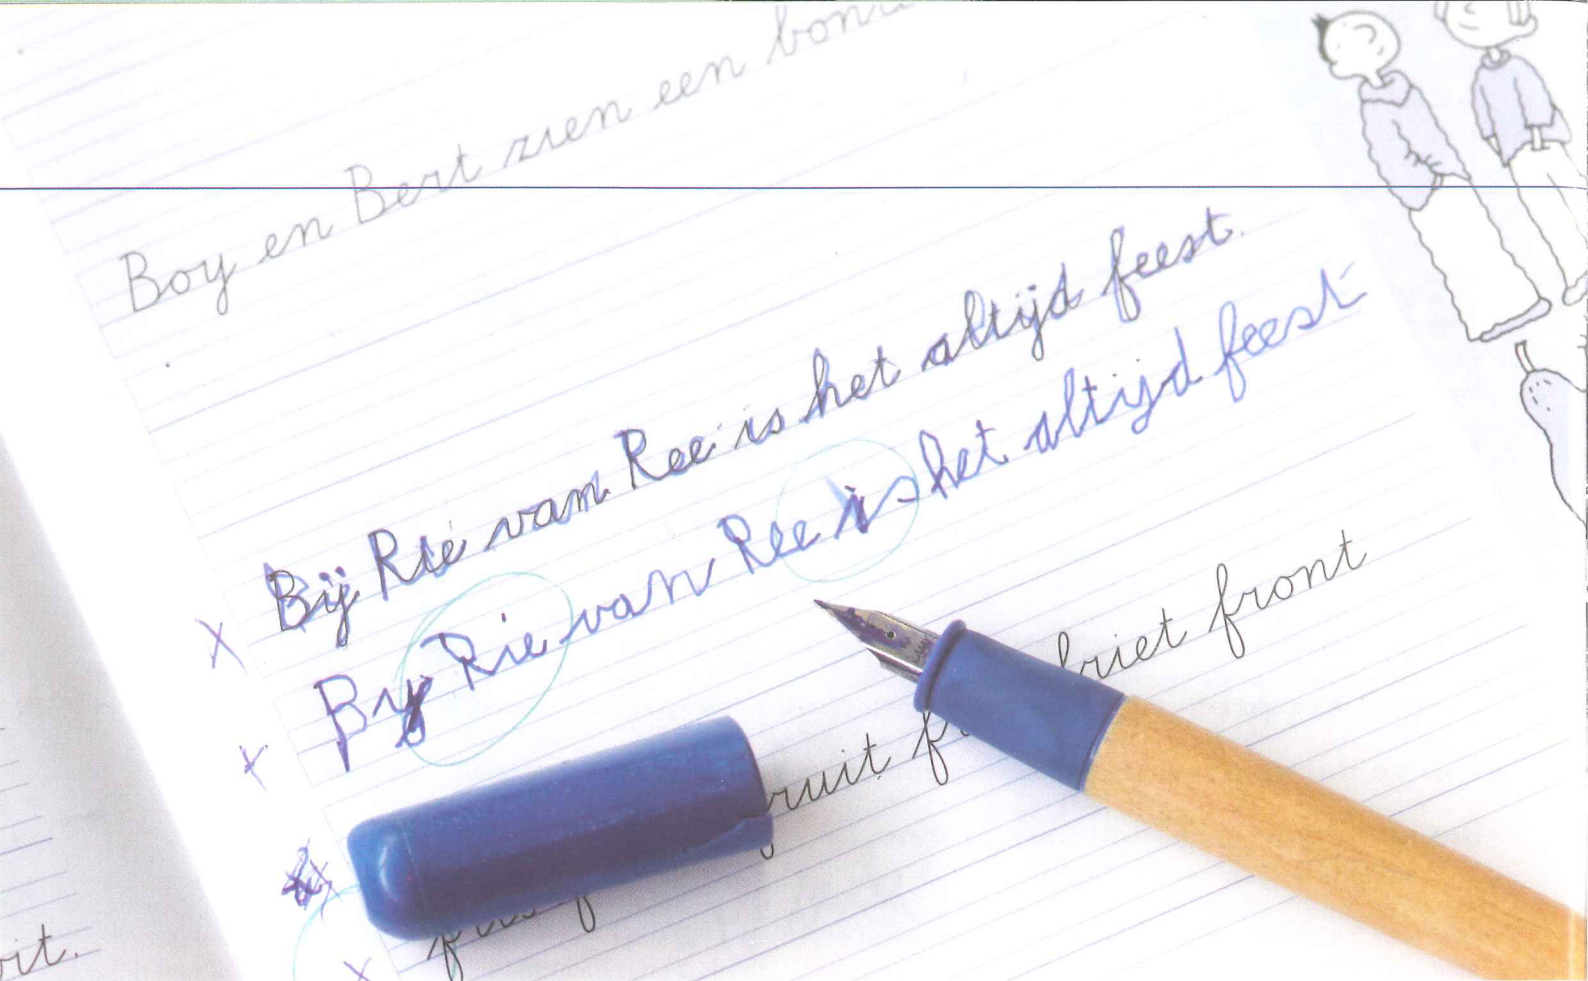 Boy en Bert zien een
Bij Rie van Ree is het altijd feest.
Bij Rie van Ree is het altijd feest
friet front